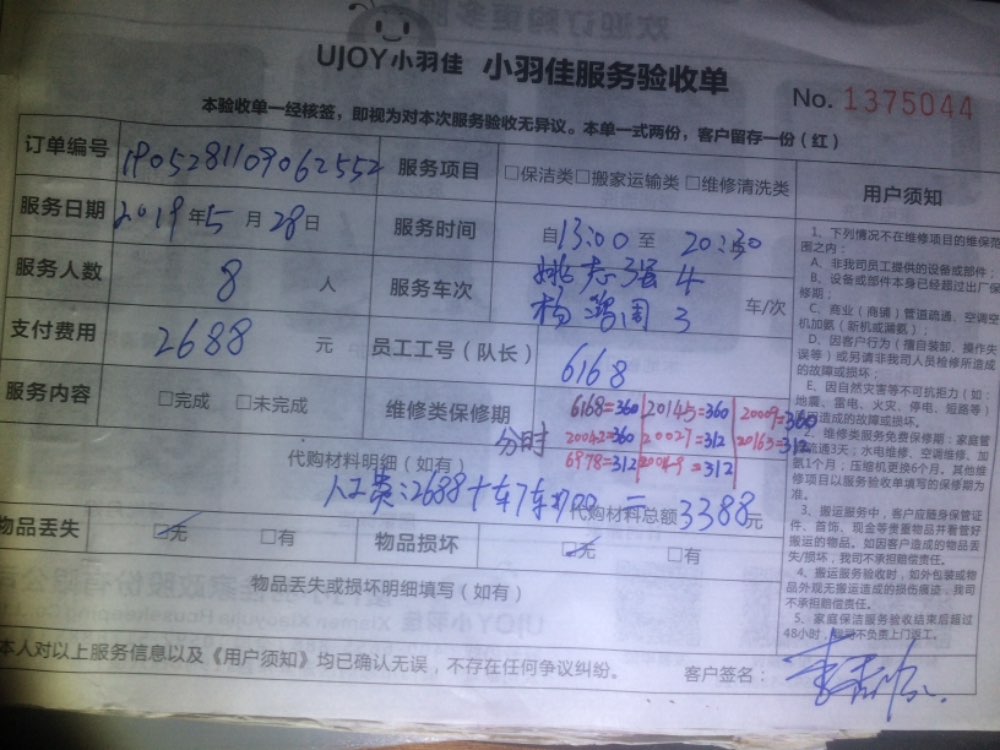 UJOY小羽佳 小羽佳服务验收单
No. 1375044
本验收单一经核签，即视为对本次服务验收无异议。本单一式两份，客户留存一份（红）
订单编号 服务项目 □保洁类□搬家运输类 □维修清洗类
服务日期 2019年5月28日 服务时间 自13:00至 20:30
服务人数 8 人 服务车次 姚志强 4
3 车/次
支付费用 2688 元 员工工号（队长） 6168
服务内容 □完成 □未完成 维修类保修期
分时
6168=360 20145=360 20009=360
20042=360 20027=312 20163=312
6978=312 20049=312
代购材料明细（如有）
人工费:2688+车7车 代购材料总额3388元
物品丢失 □无 □有 物品损坏 □无 □有
物品丢失或损坏明细填写（如有）
本人对以上服务信息以及《用户须知》均已确认无误，不存在任何争议纠纷。 客户签名：
用户须知
1、下列情况不在维修项目的维保范
围之内：
A、非我司员工提供的设备或部件；
B、设备或部件本身已经超过出厂保
修期；
C、商业（商铺）管道疏通、空调空
机加氨（新机或漏氨）；
D、因客户行为（擅自装卸、操作失
误等）或另请非我司人员检修所造成
的故障或损坏；
E、因自然灾害等不可抗拒力（如：
地震、雷电、火灾、停电、短路等）
所造成的故障或损坏。
2、维修类服务免费保修期：家庭管
疏通3天；水电维修、空调维修、加
氨1个月；压缩机更换6个月。其他维
修项目以服务验收单填写的保修期为
准。
3、搬运服务中，客户应随身保管证
件、首饰、现金等贵重物品并看管好
搬运的物品。如因客户造成的物品丢
失/损坏，我司不承担赔偿责任。
4、搬运服务验收时，如外包装或物
品外观无搬运造成的损伤痕迹，我司
不承担赔偿责任。
5、家庭保洁服务验收结束后超过
48小时，我司不负责上门返工。